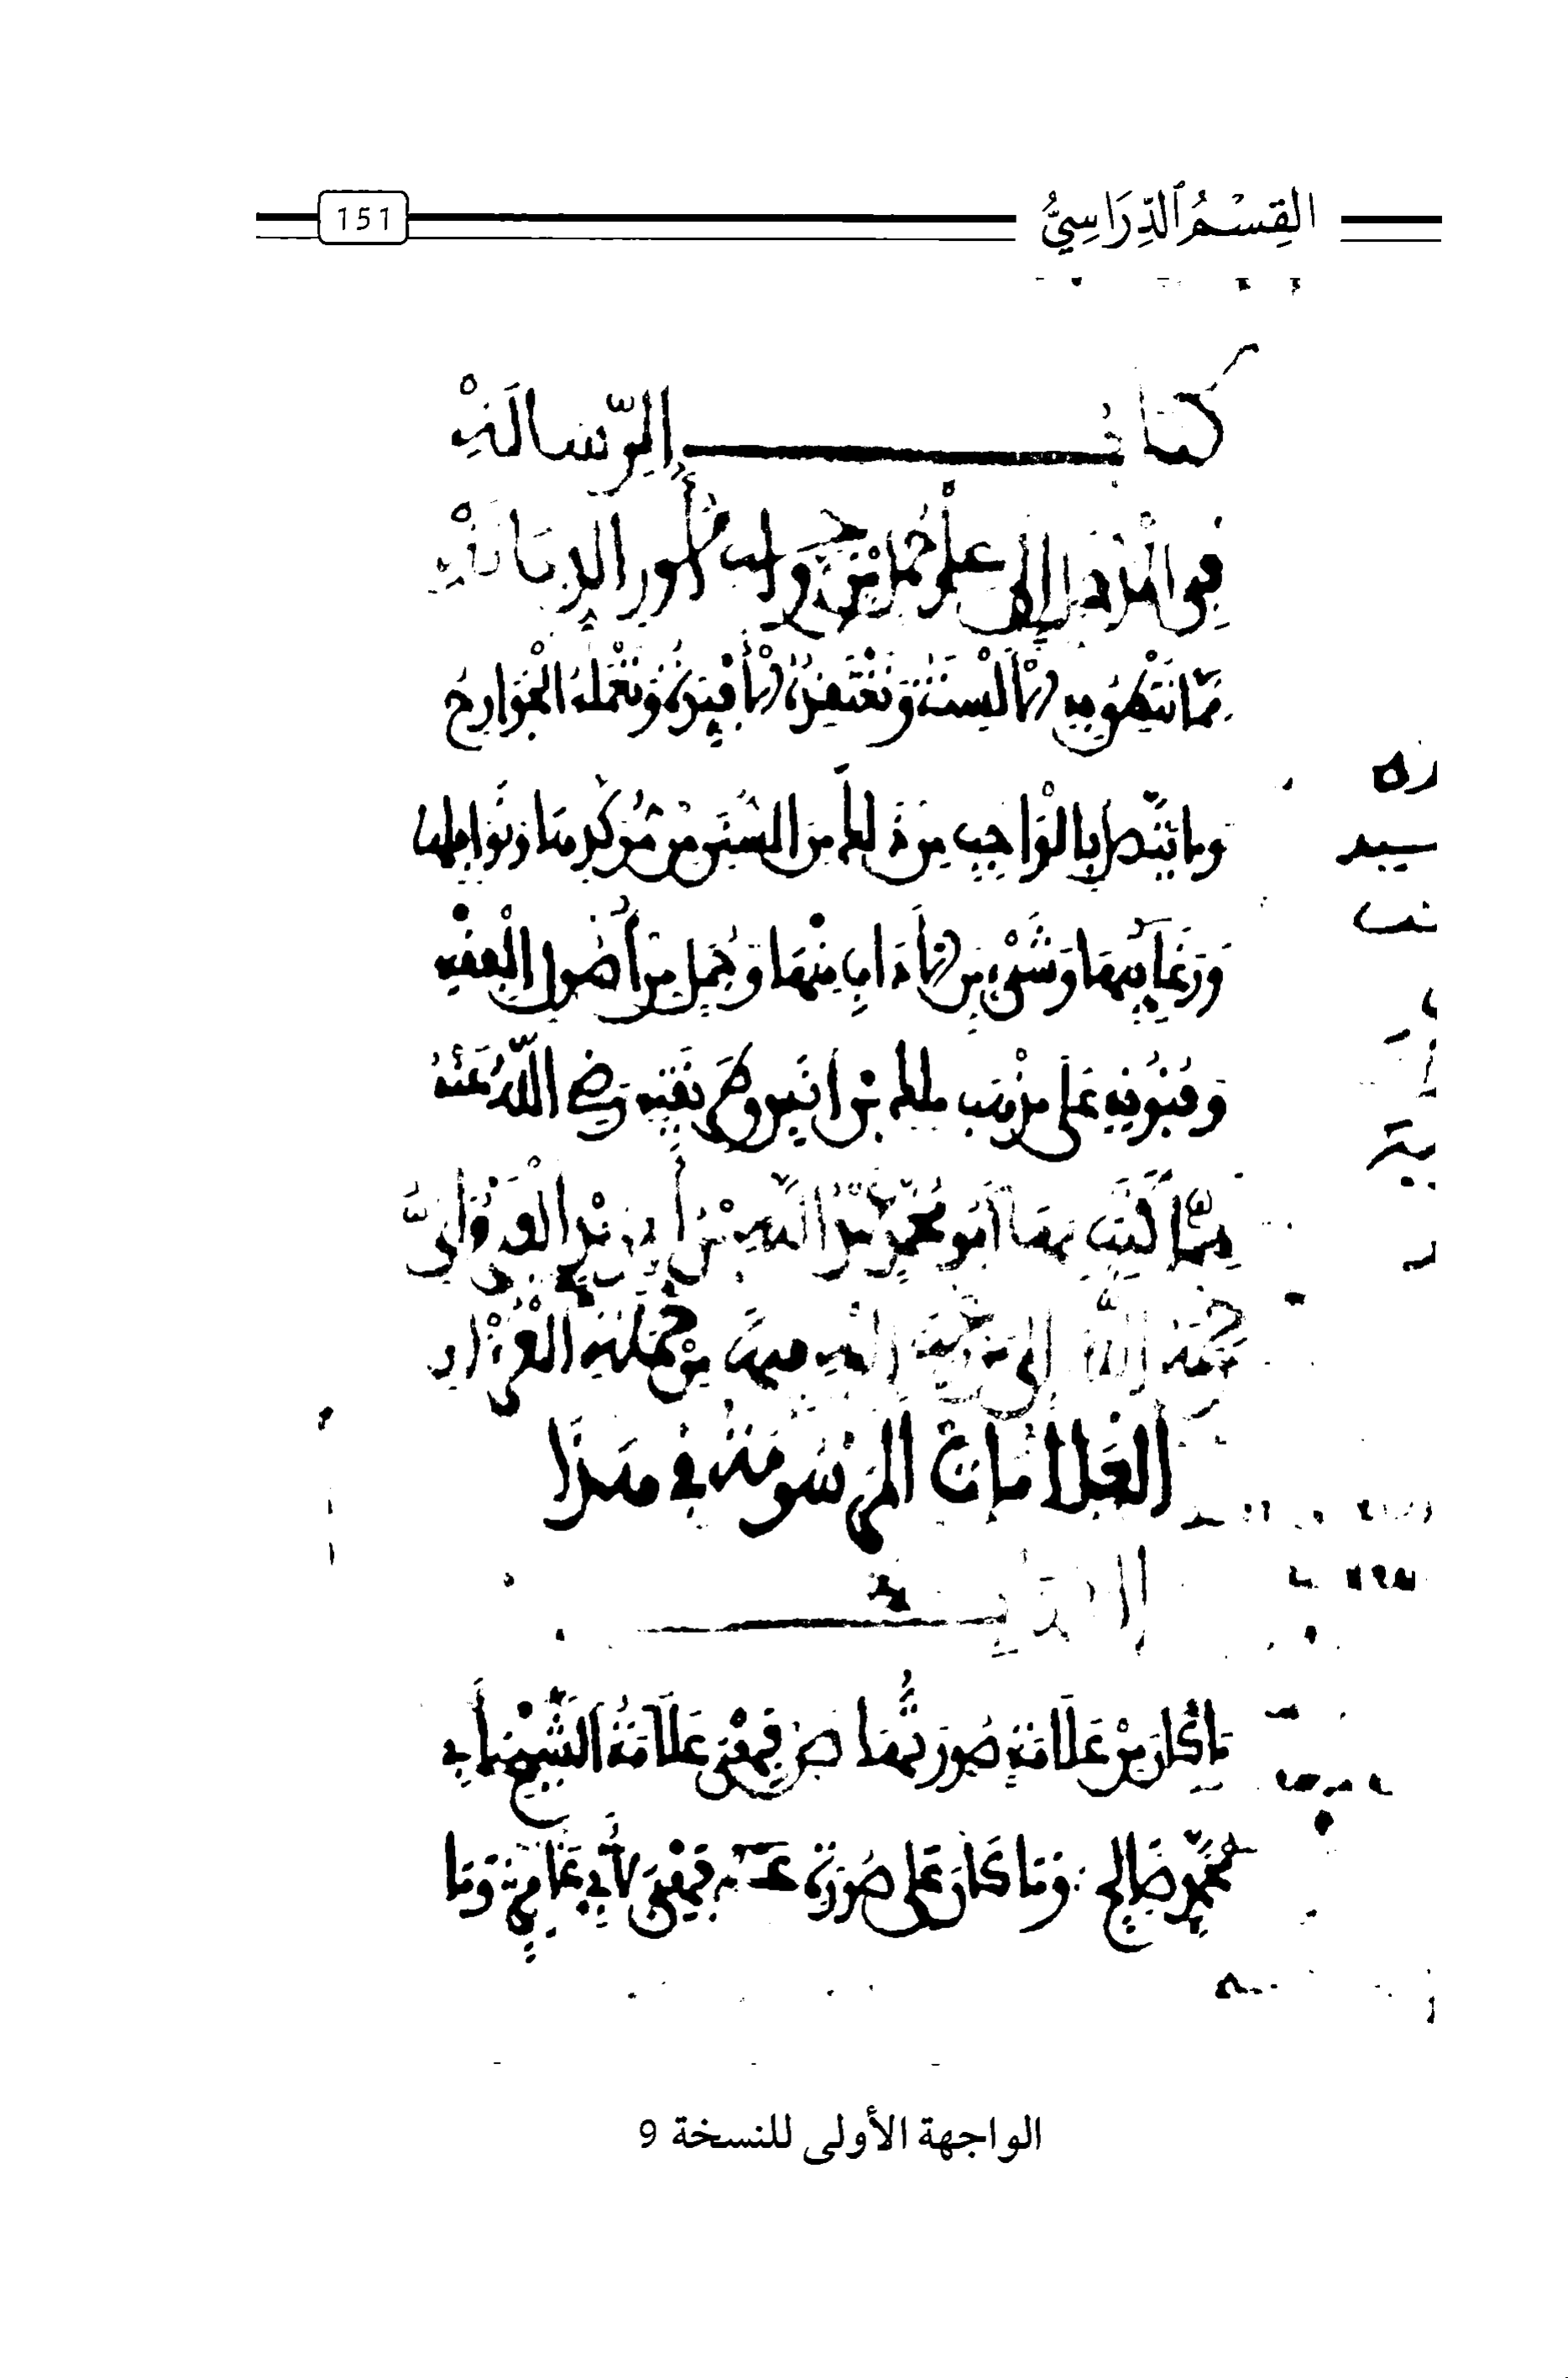 القِسْمُ الدِّرَاسِيُّ
151
كتاب الرّسالة
في المدخل إلى علم جمل من واجب أمور الديانة
مما تنطق به الألسنة وتعتقده الأفئدة وتعمله الجوارح
وما يتصل بالواجب من ذلك من السنن من مؤكدها ونوافلها
ورغائبها وشيء من الآداب منها وجمل من أصول الفقه
وفنونه على مذهب ملك بن انس وطريقته رضي الله عنه
مما كتب بها أبو محمد عبد الله بن أبي زيد القيرواني
رحمة الله إلى من رغب إليه فيها من جملة القراء
العلامات المرسومة في هذا
ما كان من علامة صورتها ص فهي علامة الشيخ أبي
محمد صالح وما كان على صورة عـ فهي لأبي عامر وما
الواجهة الأولى للنسخة 9